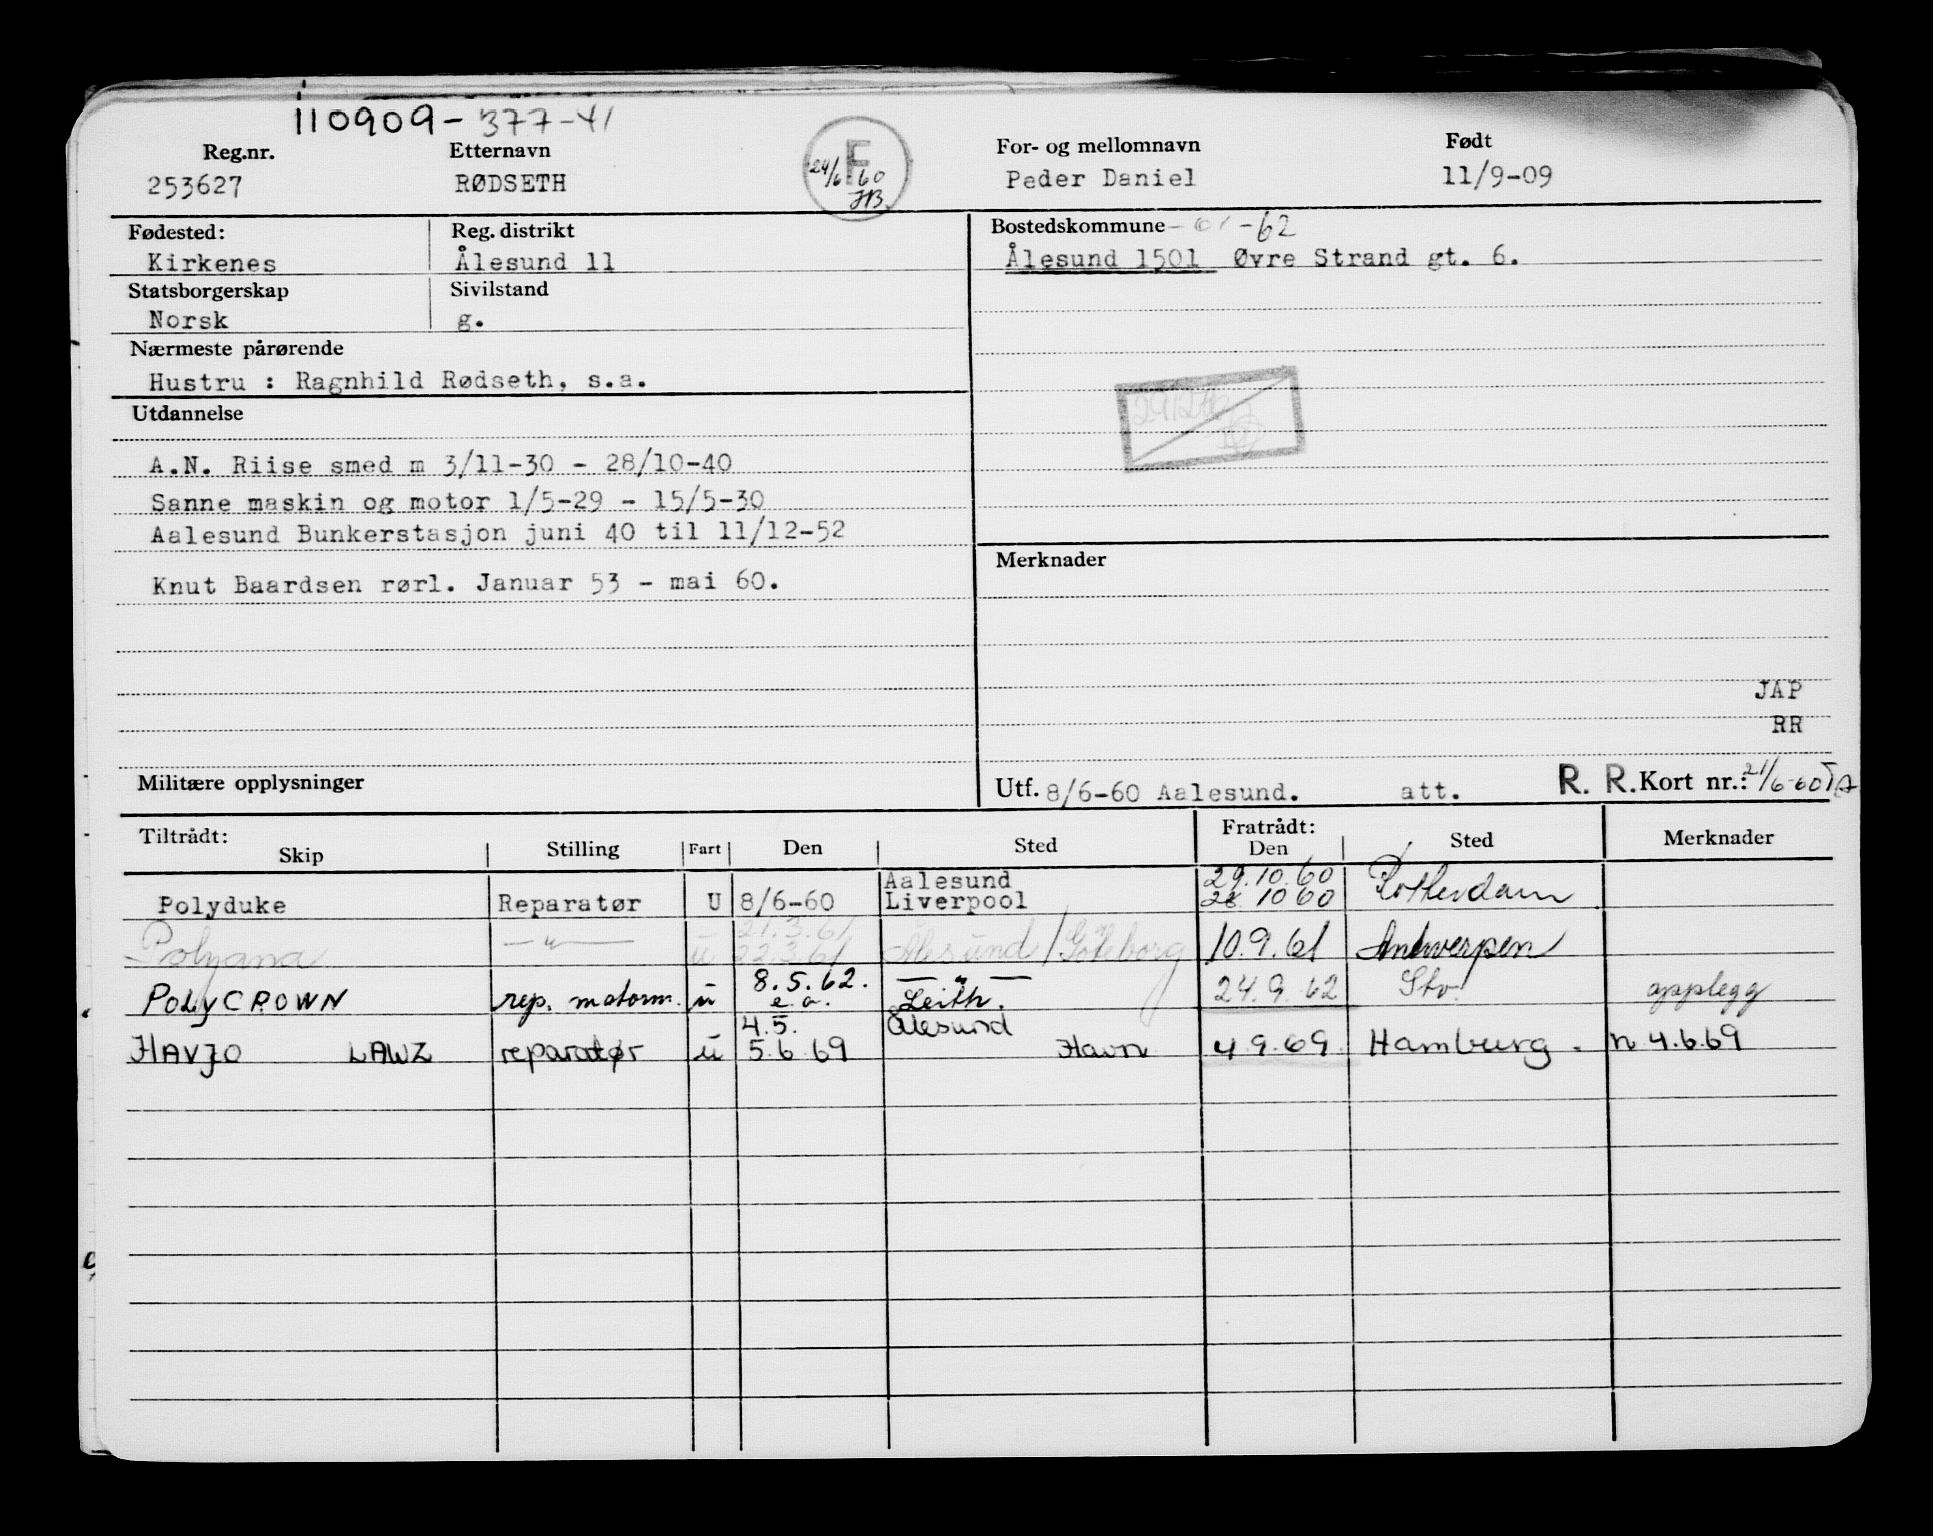 110909-377-41
Reg.nr. Etternavn For- og mellomnavn Født
253627 RØDSETH F 24/6 60 HB. Peder Daniel 11/9-09
Fødested: Reg. distrikt Bostedskommune -62
Kirkenes Ålesund 11 Ålesund 1501 Øvre Strand gt. 6.
Statsborgerskap Sivilstand
Norsk g.
Nærmeste pårørende
Hustru : Ragnhild Rødseth, s.a.
Utdannelse
A.N. Riise smed m 3/11-30 - 28/10-40
Sanne maskin og motor 1/5-29 - 15/5-30
Aalesund Bunkerstasjon juni 40 til 11/12-52
Merknader
Knut Baardsen rørl. Januar 53 - mai 60.
JAP
RR
Militære opplysninger Utf. 8/6-60 Aalesund. att. R. R. Kort nr.: 21/6-60
Tiltrådt: Skip Stilling Fart Den Sted Fratrådt: Den Sted Merknader
Aalesund 29.10.60
Polyduke Reparatør U 8/6-60 Liverpool 28 10 60 Rotterdam
21.3.61
Polyana — " — u 22.3.61 Ålesund/Göteborg 10.9.61 Antwerpen
8.5.62. — " —
POLYCROWN rep. motorm. u e.a. Leith. 24.9.62 Stv. opplegg
4.5. Ålesund
HAVJO LAWZ reparatør u 5.6.69 Havn 4.9.69 Hamburg. n 4.6.69